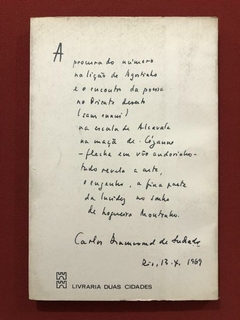 A procura do número
na lição de Agostinho
e o encontro da poesia
no Oriente deserto
(sam ennui)
na escala de Alcavala
na maçã de Cézanne
- flecha em vão andorinho -
tudo revela a arte,
o engenho, a fina prata
da lucidez no sonho
de Nogueira Moutinho.
Carlos Drummond de Andrade
Rio, 13.X.1969
LIVRARIA DUAS CIDADES